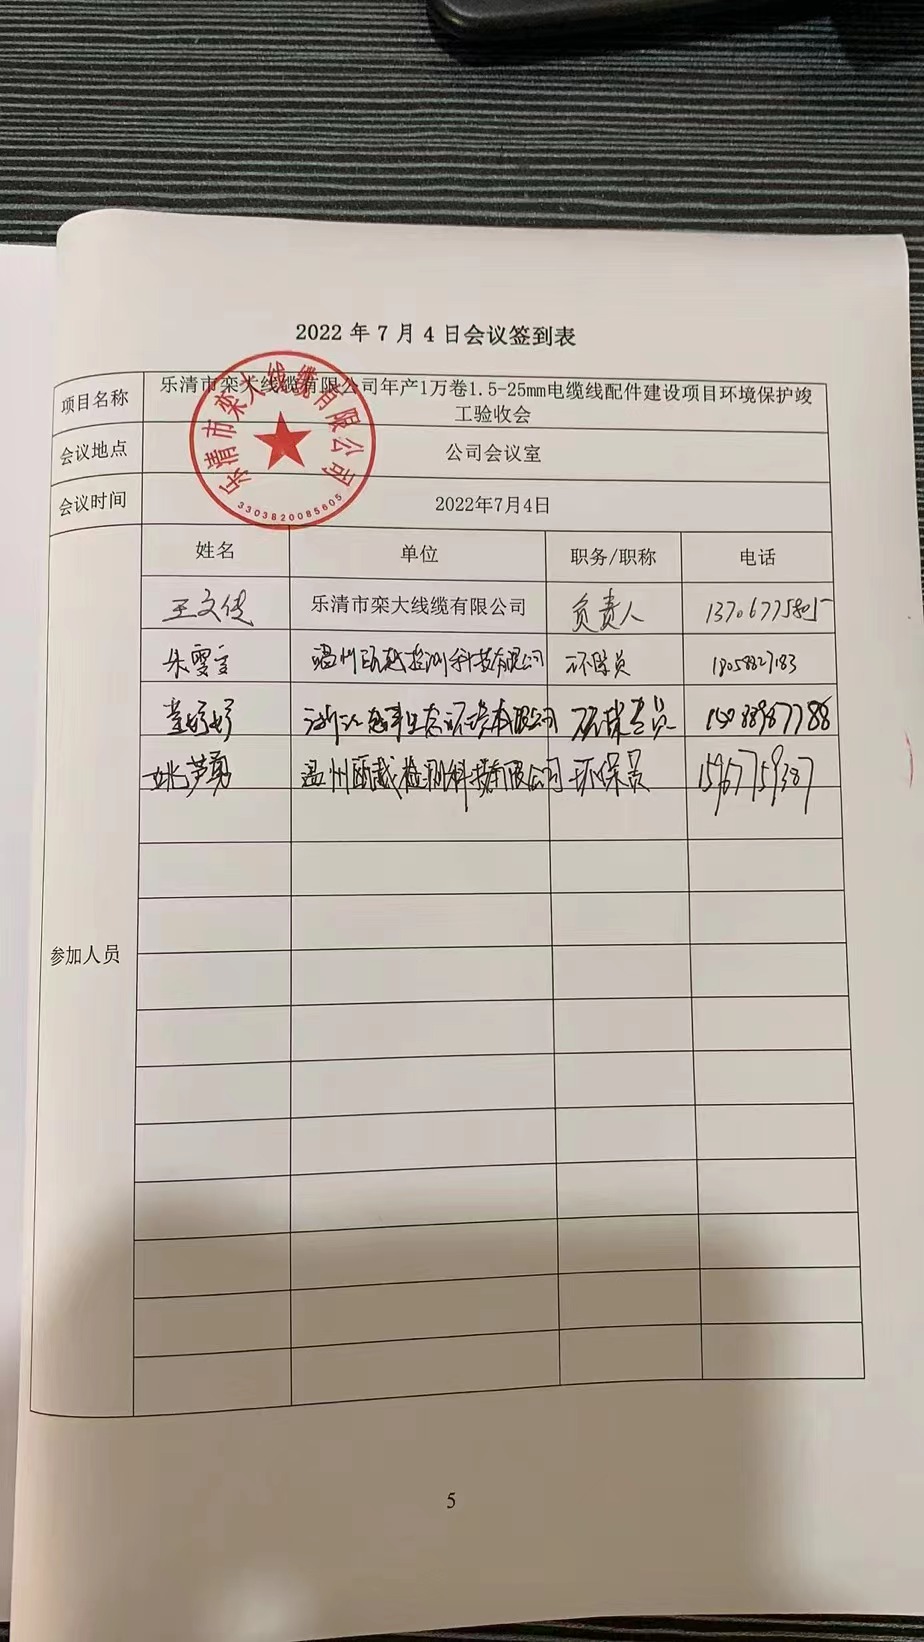 2022 年 7 月 4 日会议签到表
项目名称 乐清市栾大线缆有限公司年产1万卷1.5-25mm电缆线配件建设项目环境保护竣
工验收会
会议地点 公司会议室
会议时间 2022年7月4日
乐清市栾大线缆有限公司
3303820085605
姓名 单位 职务/职称 电话
王文 乐清市栾大线缆有限公司 负责人
朱雯 温州瓯越检测科技有限公司 环保员
董婷婷 浙江 生态环境 有限公司 环保专员 15088967788
姚芦勇 温州瓯越检测科技有限公司 环保员 15967759387
参加人员
5